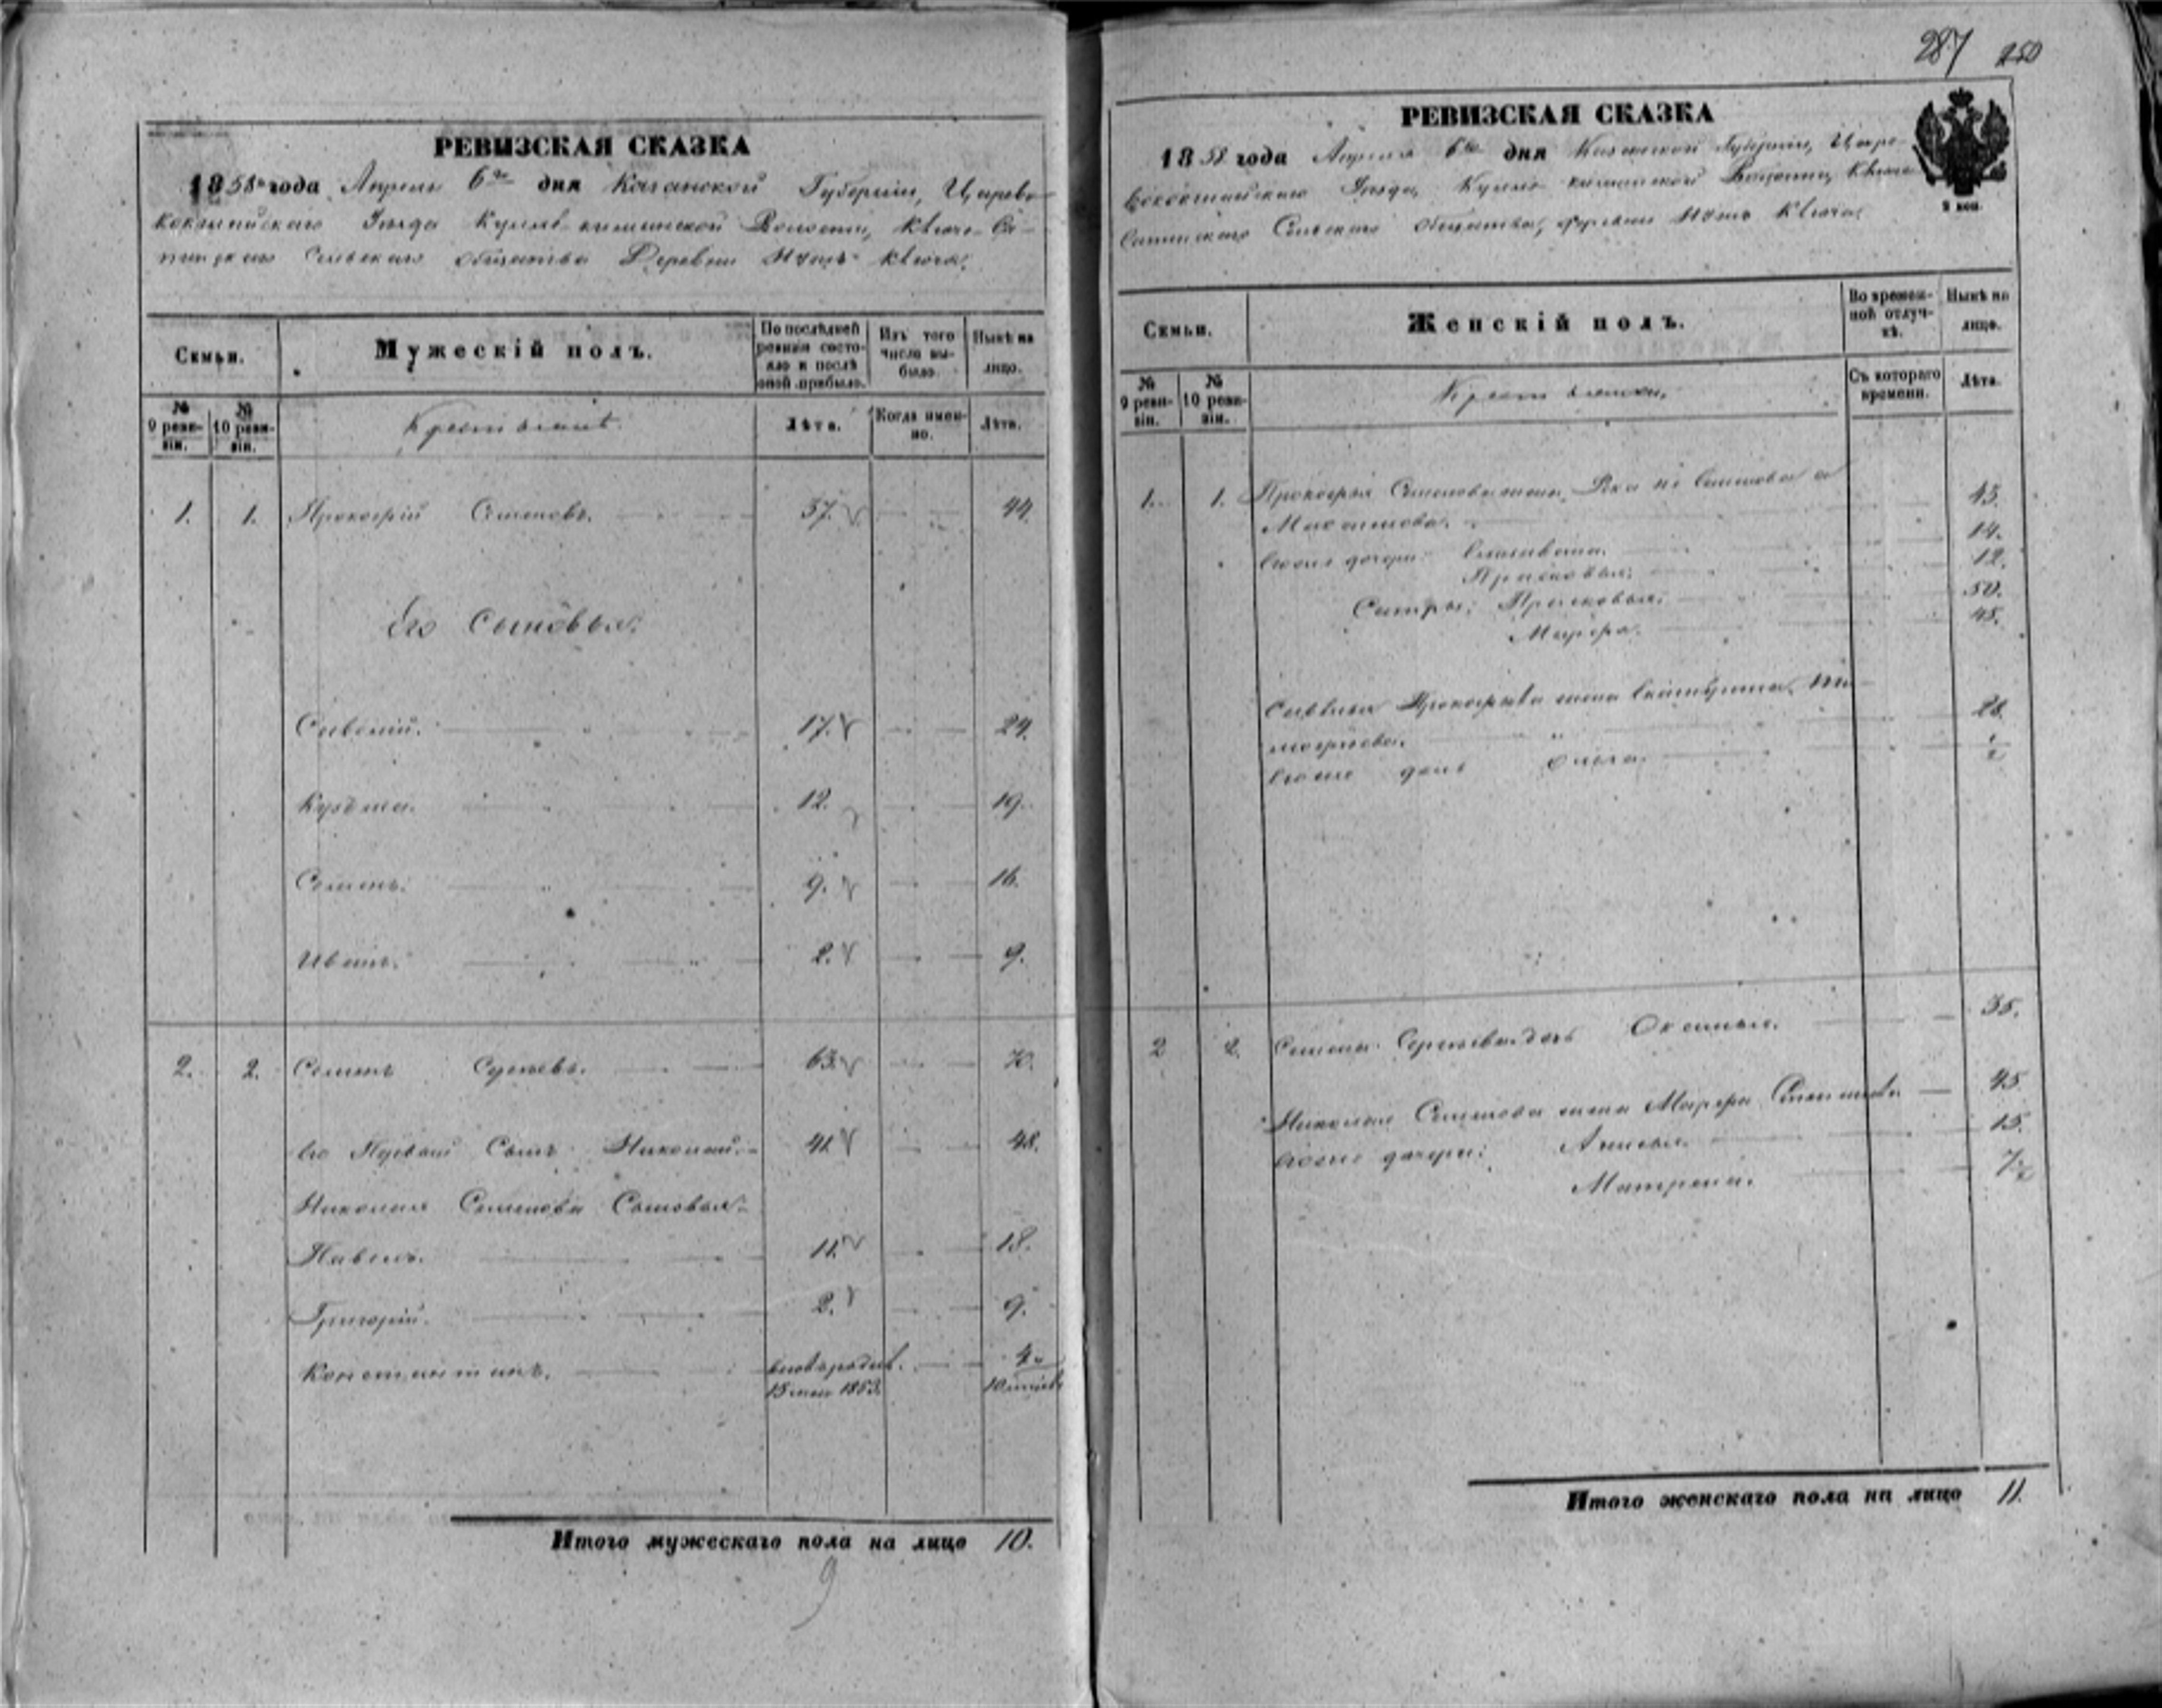 РЕВИЗСКАЯ СКАЗКА
1858 года Апреля 6го дня Казанской Губернiи, Царево-
кокшайскаго Уѣзда Кулле-киминской Волости, Ключе-Са-
пинскаго Сельскаго общества Деревни Ключа.
Семьи.
Мужескiй полъ.
По послѣдней ревизiи состо-яло и послѣ оной прибыло.
Изъ того числа вы-было.
Нынѣ на лицо.
№ 9 реви-зiи.
№ 10 реви-зiи.
Крестьяне.
Лѣта.
Когда имен-но.
Лѣта.
1. 1. Прокофiй Семеновъ. 37. 44.
Его Сыновья:
Савелiй. 17. 24.
Кузьма. 12. 19.
Семенъ. 9. 16.
Иванъ. 2. 9.
2. 2. Семенъ Сергѣевъ. 63. 70.
Его Сынъ Николай. 41. 48.
Николая Семенова Сыновья:
Павелъ. 11. 18.
Григорiй. 2. 9.
Константинъ. 4.
15 мая 1853
Итого мужескаго пола на лицо 10.
9
287 250
РЕВИЗСКАЯ СКАЗКА
2 коп.
1858 года Апреля 6го дня Казанской Губернiи, Царе-
вококшайскаго Уѣзда, Кулле-киминской Волости, Ключе-
Сапинскаго Сельскаго общества, деревни Ключа
Семьи.
Женскiй полъ.
Во времен-ной отлуч-кѣ.
Нынѣ на лицо.
№ 9 реви-зiи.
№ 10 реви-зiи.
Крестьянки.
Съ котораго времени.
Лѣта.
1. 1. Прокофья Семенова жена
Максимова. 43.
Ея дочери: 14.
Прасковья; 12.
Сестры: Прасковья; 50.
Марфа. 45.
Савелья Прокофьева жена Ти-
мофѣева. 28.
дочь
2 2. Семена Сергѣева дочь Оксинья. 35.
Николая Семенова жена Марфа 45
дочери: Анисья. 15.
Матрена. 7
Итого женскаго пола на лицо 11.